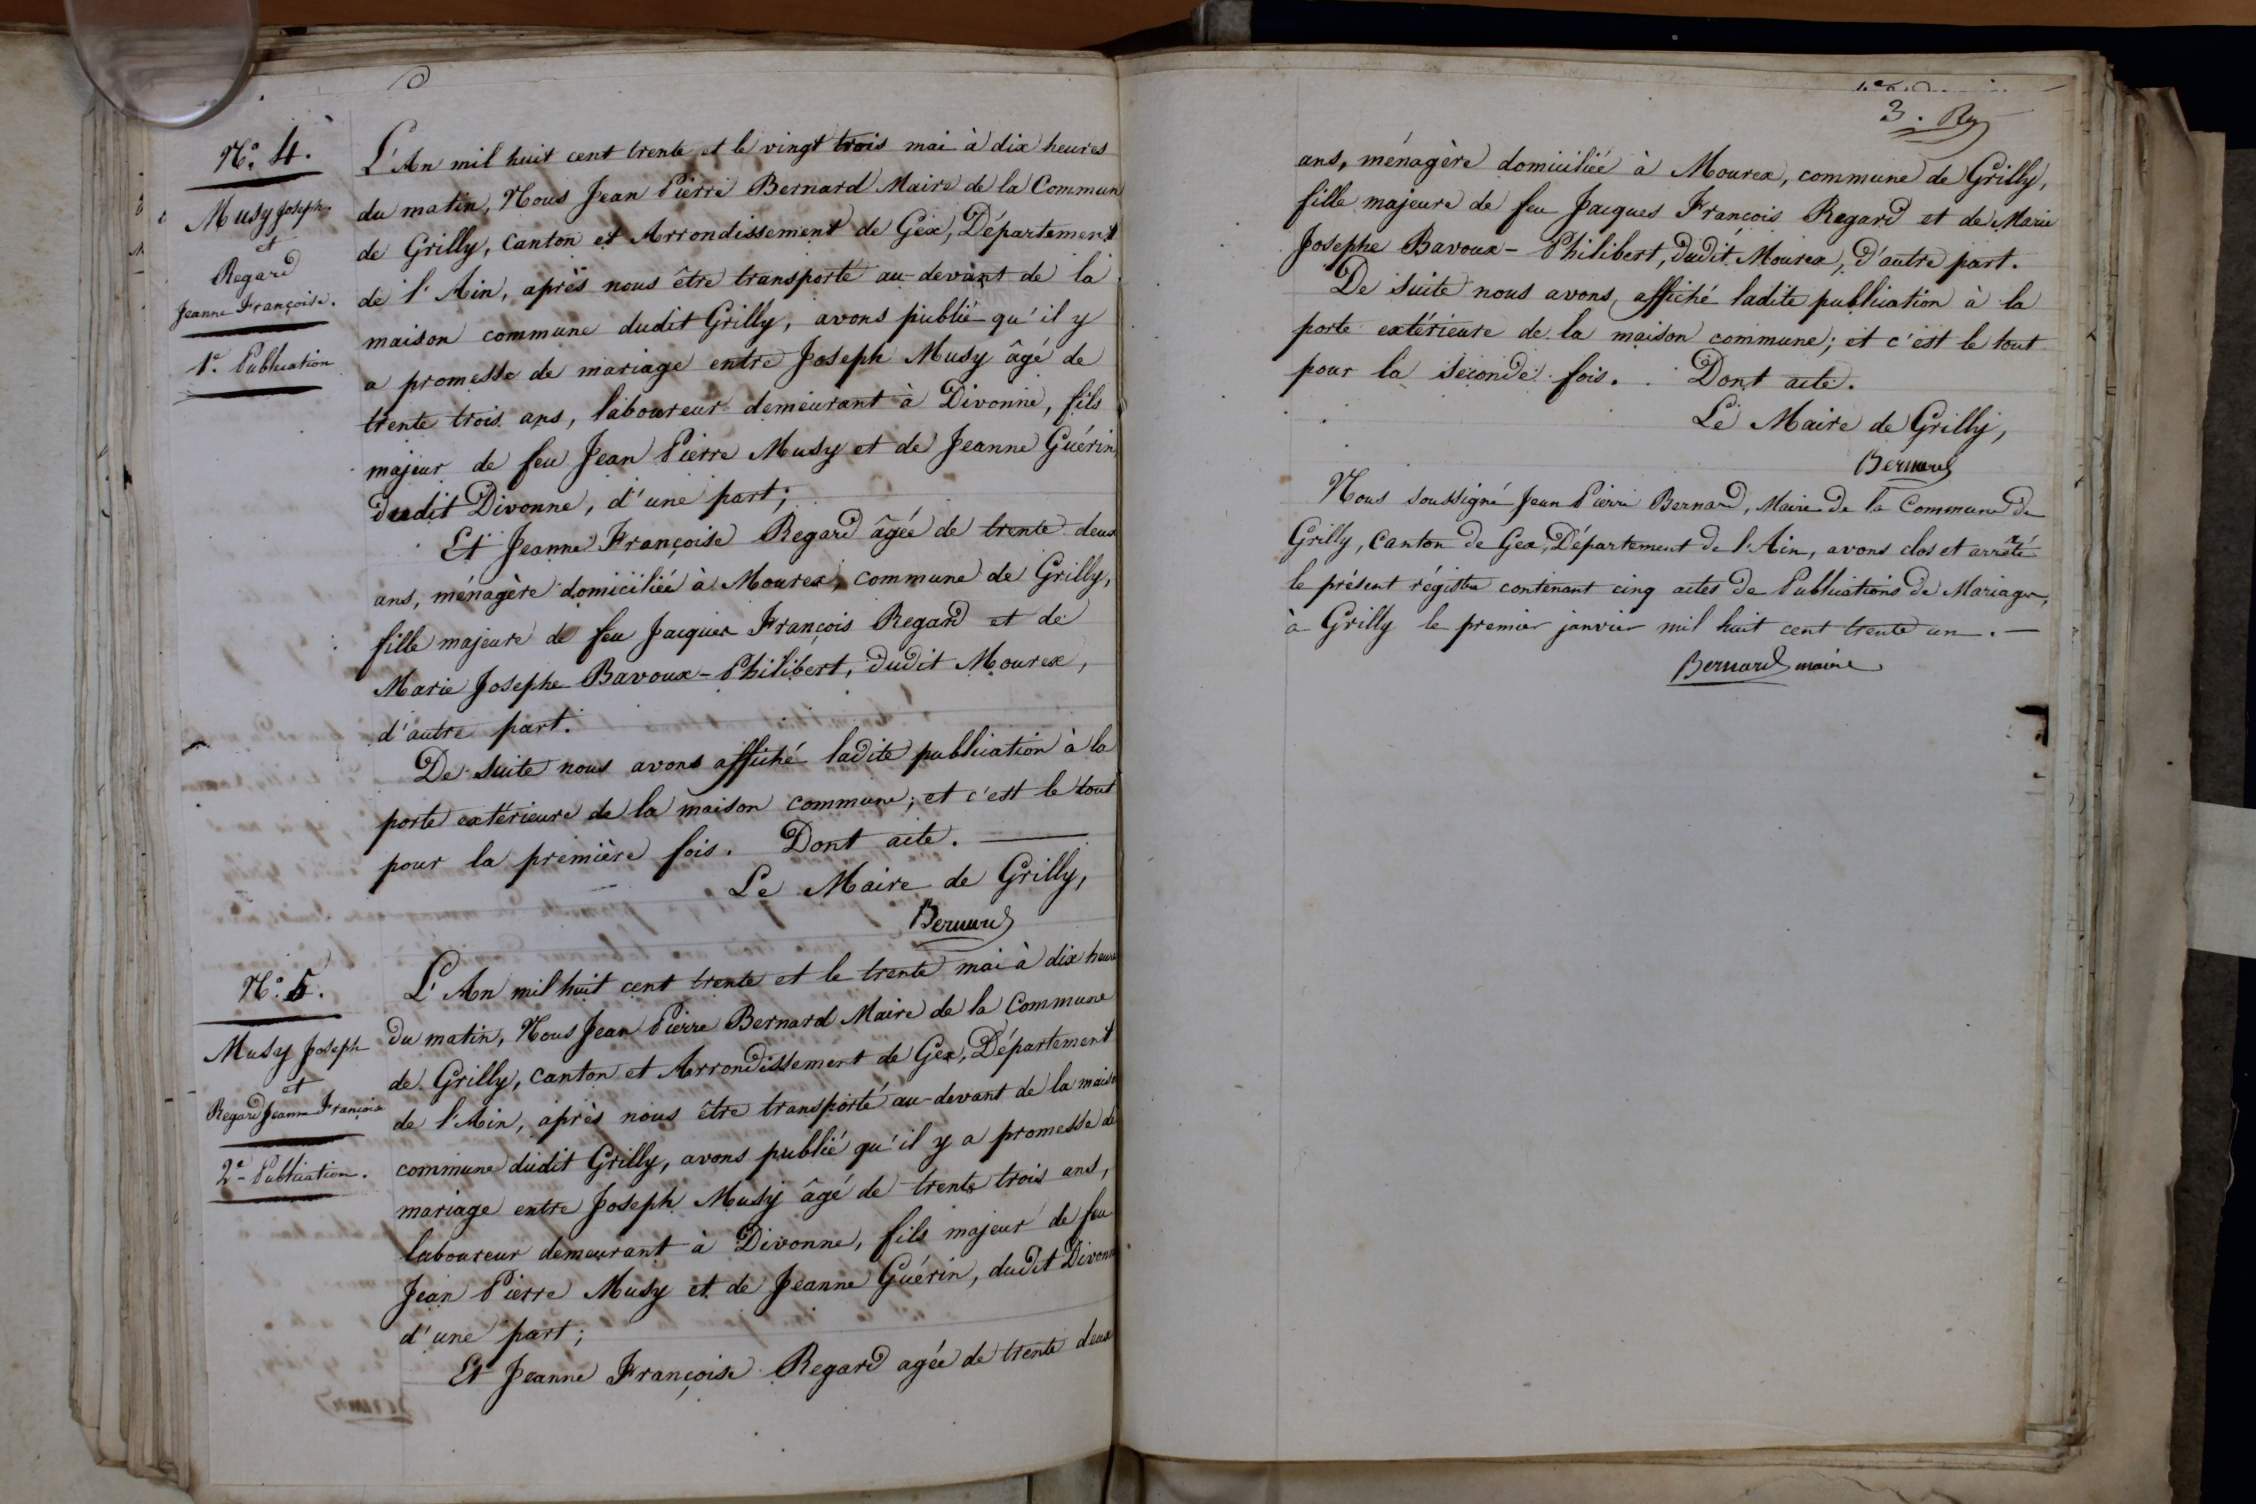 N.° 4.
Musy Joseph.
et
Regard
Jeanne Françoise.
1.e Publication
L'An mil huit cent trente et le vingt trois mai à dix heures
du matin, Nous Jean Pierre Bernard Maire de la Commun
de Grilly, Canton et Arrondissement de Gex, Département
de l'Ain, après nous être transporté au-devant de la
maison commune dudit Grilly, avons publié qu'il y
a promesse de mariage entre Joseph Musy âgé de
trente trois ans, laboureur demeurant à Divonne, fils
majeur de feu Jean Pierre Musy et de Jeanne Guérin,
dudit Divonne, d'une part;
Et Jeanne Françoise Regard âgée de trente deux
ans, ménagère domiciliée à Mourex, commune de Grilly,
fille majeure de feu Jacques François Regard et de
Marie Josephe Bavoux-Philibert, dudit Mourex,
d'autre part.
De suite nous avons affiché ladite publication à la
porte extérieure de la maison commune; et c'est le tout
pour la première fois. Dont acte.
Le Maire de Grilly,
Bernard
N.° 5.
Musy Joseph
et
Regard Jeanne Françoise
2.e Publication.
L'An mil huit cent trente et le trente mai à dix heures
du matin, Nous Jean Pierre Bernard Maire de la Commune
de Grilly, canton et Arrondissement de Gex, Département
de l'Ain, après nous être transporté au-devant de la maison
commune dudit Grilly, avons publié qu'il y a promesse de
mariage entre Joseph Musy âgé de trente trois ans,
laboureur demeurant à Divonne, fils majeur de feu
Jean Pierre Musy et de Jeanne Guérin, dudit Divonne
d'une part;
Et Jeanne Françoise Regard agée de trente deux
3.
ans, ménagère domiciliée à Mourex, commune de Grilly,
fille majeure de feu Jacques François Regard et de Marie
Josephe Bavoux-Philibert, dudit Mourex, d'autre part.
De suite nous avons affiché ladite publication à la
porte extérieure de la maison commune; et c'est le tout
pour la seconde fois. Dont acte.
Le Maire de Grilly,
Bernard
Nous soussigné Jean Pierre Bernard, Maire de la Commune de
Grilly, Canton de Gex, Département de l'Ain, avons clos et arrêté
le présent régistre contenant cinq actes de Publications de Mariage,
à Grilly le premier janvier mil huit cent trente un.
Bernard maire